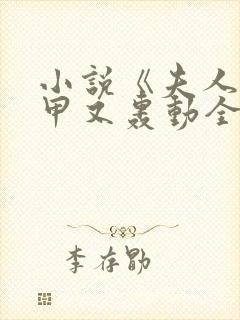 小説《夫人
甲文轰動全
李存勖